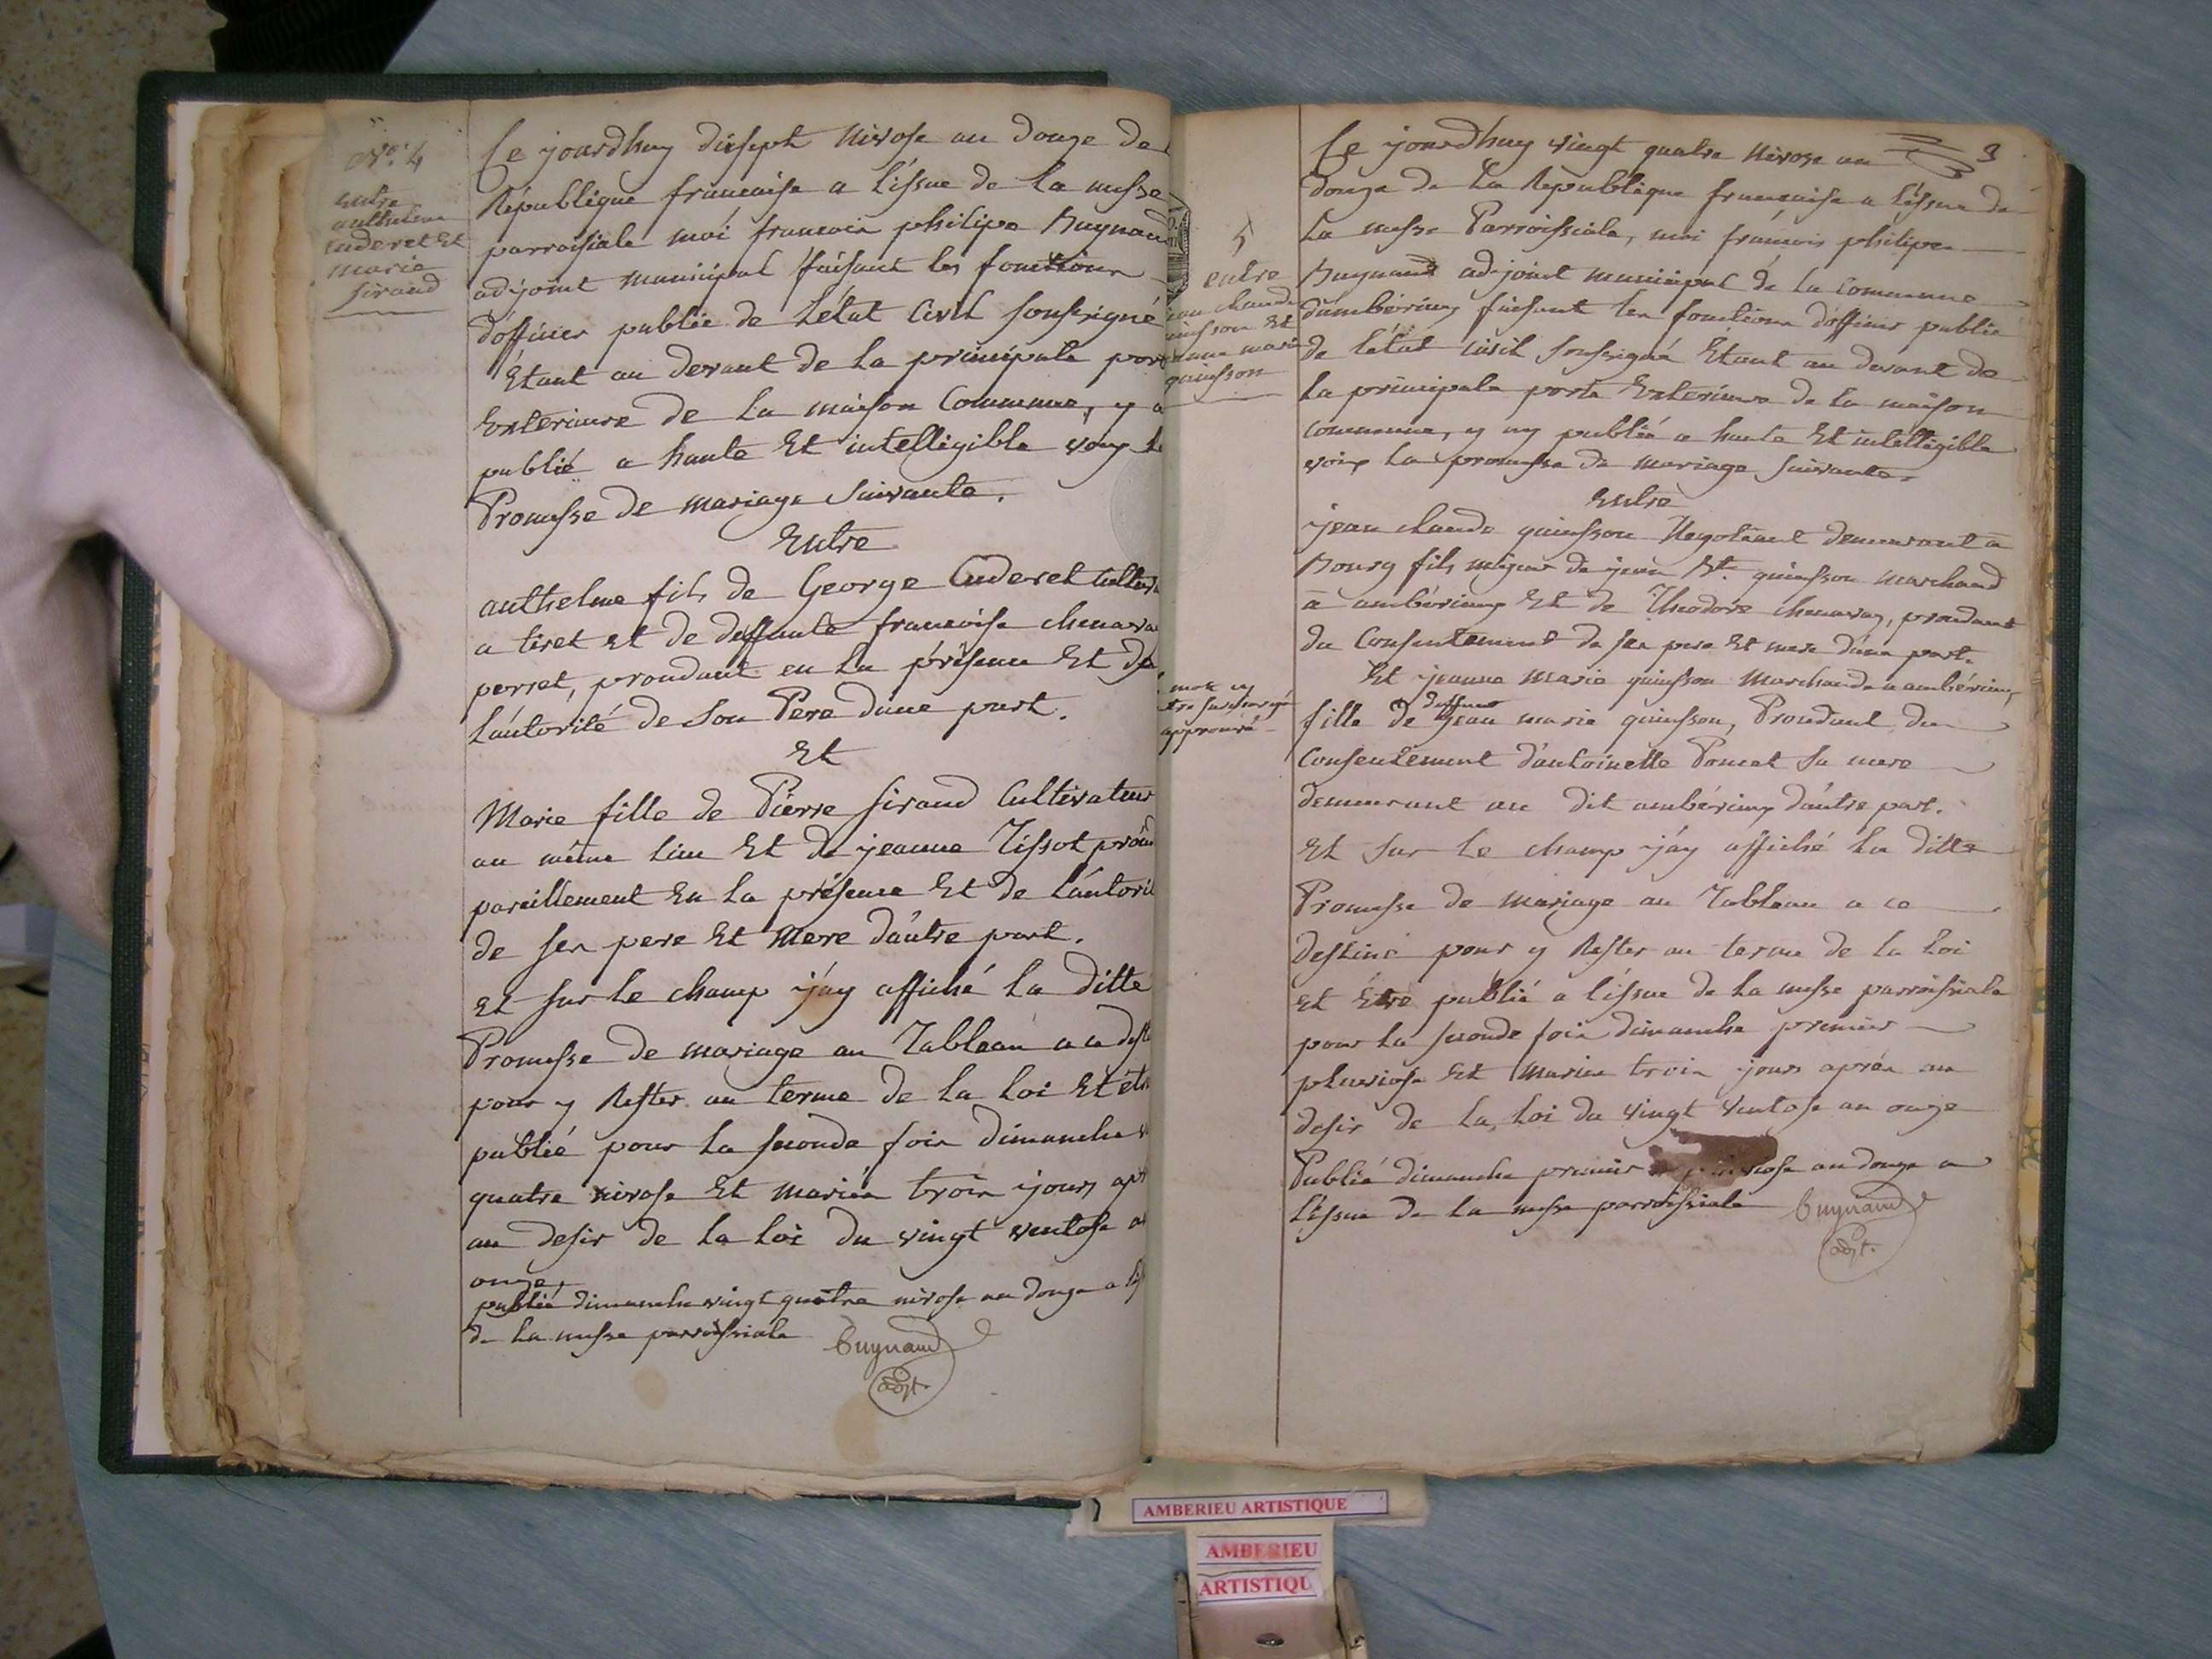 No. 4
entre
anthelme
Cuderet Et
marie
siraud
Ce jourdhuy disept Nivose an douze de
République francaise a l'issue de la messe
parroissiale moi francois philipe Buynaud
adjoint municipal faisant les fonctions
d'officier public de l'état Civil soussigné
Étant au devant de la principale port
Exterieure de la maison Commune, y a
publié a haute Et intelligible voix
Promesse de mariage suivante.
Entre
anthelme fils de George Cuderet
a tiret et de deffunte francoise
perret, procedant en la présence Et de
l'autorité de son Pere d'une part.
Et
Marie fille de Pierre siraud Cultivateur
au même lieu Et de jeanne Tissot
pareillement En la présence Et de l'autorit
de ses pere Et Mere d'autre part.
et sur le champ j'ay affiché la ditte
Promesse de mariage au Tableau a ce dest
pour y Rester au terme de la loi Et être
publié pour la seconde fois dimanche
quatre nivose Et mariés trois jours apr
au desir de la loi du vingt ventose a
onze.
publié dimanche vingt quatre nivose an douze a l'is
de la messe parroissiale Buynaud
adjt.
3
5
entre
jean claude
quinsson Et
jeanne marie
quinsson
Ce jourdhuy vingt quatre Nivose an
douze de la République francaise a l'issue de
la messe Parroissiale, moi francois philipe
Buynaud adjoint municipal de la Commune
d'ambérieux faisant les fonctions d'officier public
de l'état civil soussigné Étant au devant de
la principale porte Exterieure de la maison
commune, y ay publié a haute Et intelligible
voix la promesse de mariage suivante.
Entre
jean claude quinsson Negotiant demeurant a
Bourg fils majeur de jean Bte. quinsson marchand
a ambérieux Et de Théodore chenavaz, procedant
du Consentement de ses pere Et mere d'une part.
Et jeanne marie quinsson Marchande a ambérieux,
deffunt
fille de jean marie quinsson, Procedant du
Consentement d'antoinette Poncet sa mere
demeurant au dit ambérieux d'autre part.
approuvé
Et sur le champ j'ay affiché la ditte
Promesse de mariage au Tableau a ce
destiné pour y Rester au terme de la loi
et Etre publié a l'issue de la messe parroissiale
pour la seconde fois dimanche premier
pluviose Et mariés trois jours aprés au
desir de la loi du vingt ventose an onze
Publié dimanche premier pluviose an douze a
l'issue de la messe parroissiale Buynaud
adjt.
AMBERIEU ARTISTIQUE
AMBERIEU
ARTISTIQU